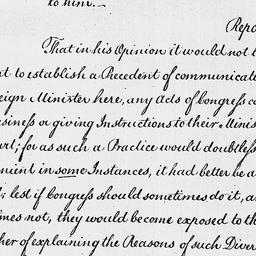 to him.—
Repo
That in his Opinion it would not b
nt to establish a Precedent of communicate
eign Minister here, any Acts of Congress co
usiness or giving Instructions to their Minis
url; for as such a Practice would doubtless
enient in some Instances, it had better be a
; lest if Congress should sometimes do it, a
imes not, they would become exposed to th
her of explaining the Reasons of such Diver